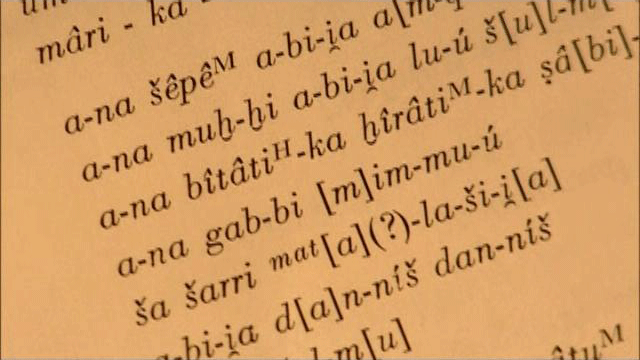 mâri - ka
a-na šêpêᴹ a-bi-i̯a a[m-
a-na muḫ-ḫi a-bi-i̯a lu-ú š[u]l-m[
a-na bîtâtiᴴ-ka ḫîrâtiᴹ-ka ṣâ[bi]-
a-na gab-bi [m]im-mu-ú
ša šarri mat[a](?)-la-ši-i̯[a]
-bi-i̯a d[a]n-níš dan-níš
l-m[u]
âtuᴹ